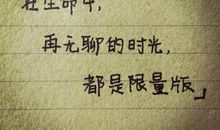 在生命中,
再无聊的时光,
都是限量版」